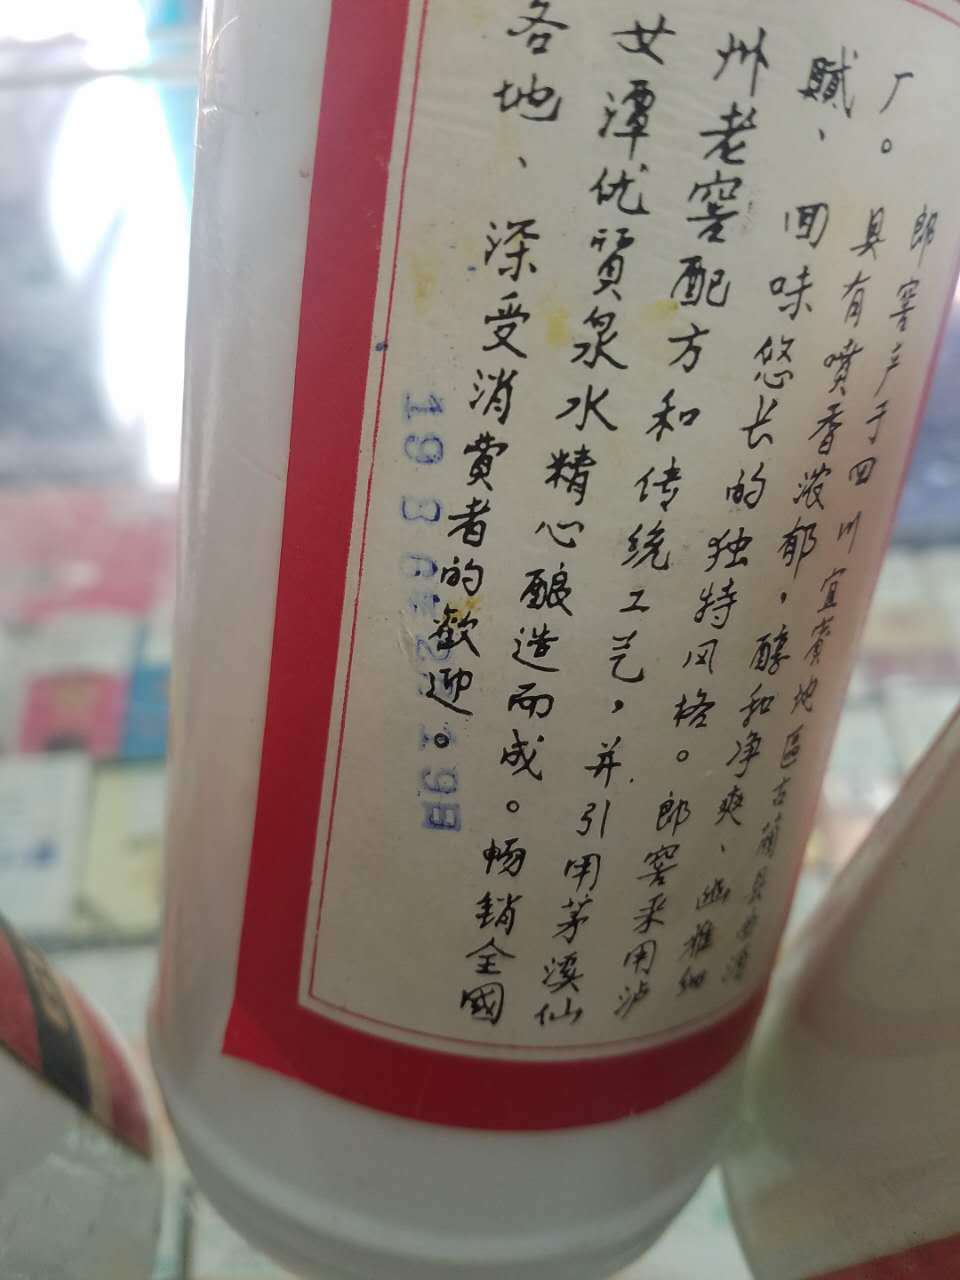 郎窖产于四川宜賓地區古蔺县曲酒
厂。具有噴香浓郁，醇和净爽、幽雅细
膩、回味悠长的独特风格。郎窖采用泸
州老窖配方和传统工艺，并引用茅溪仙
女潭优質泉水精心酿造而成。畅銷全國
各地、深受消費者的歡迎。
19日